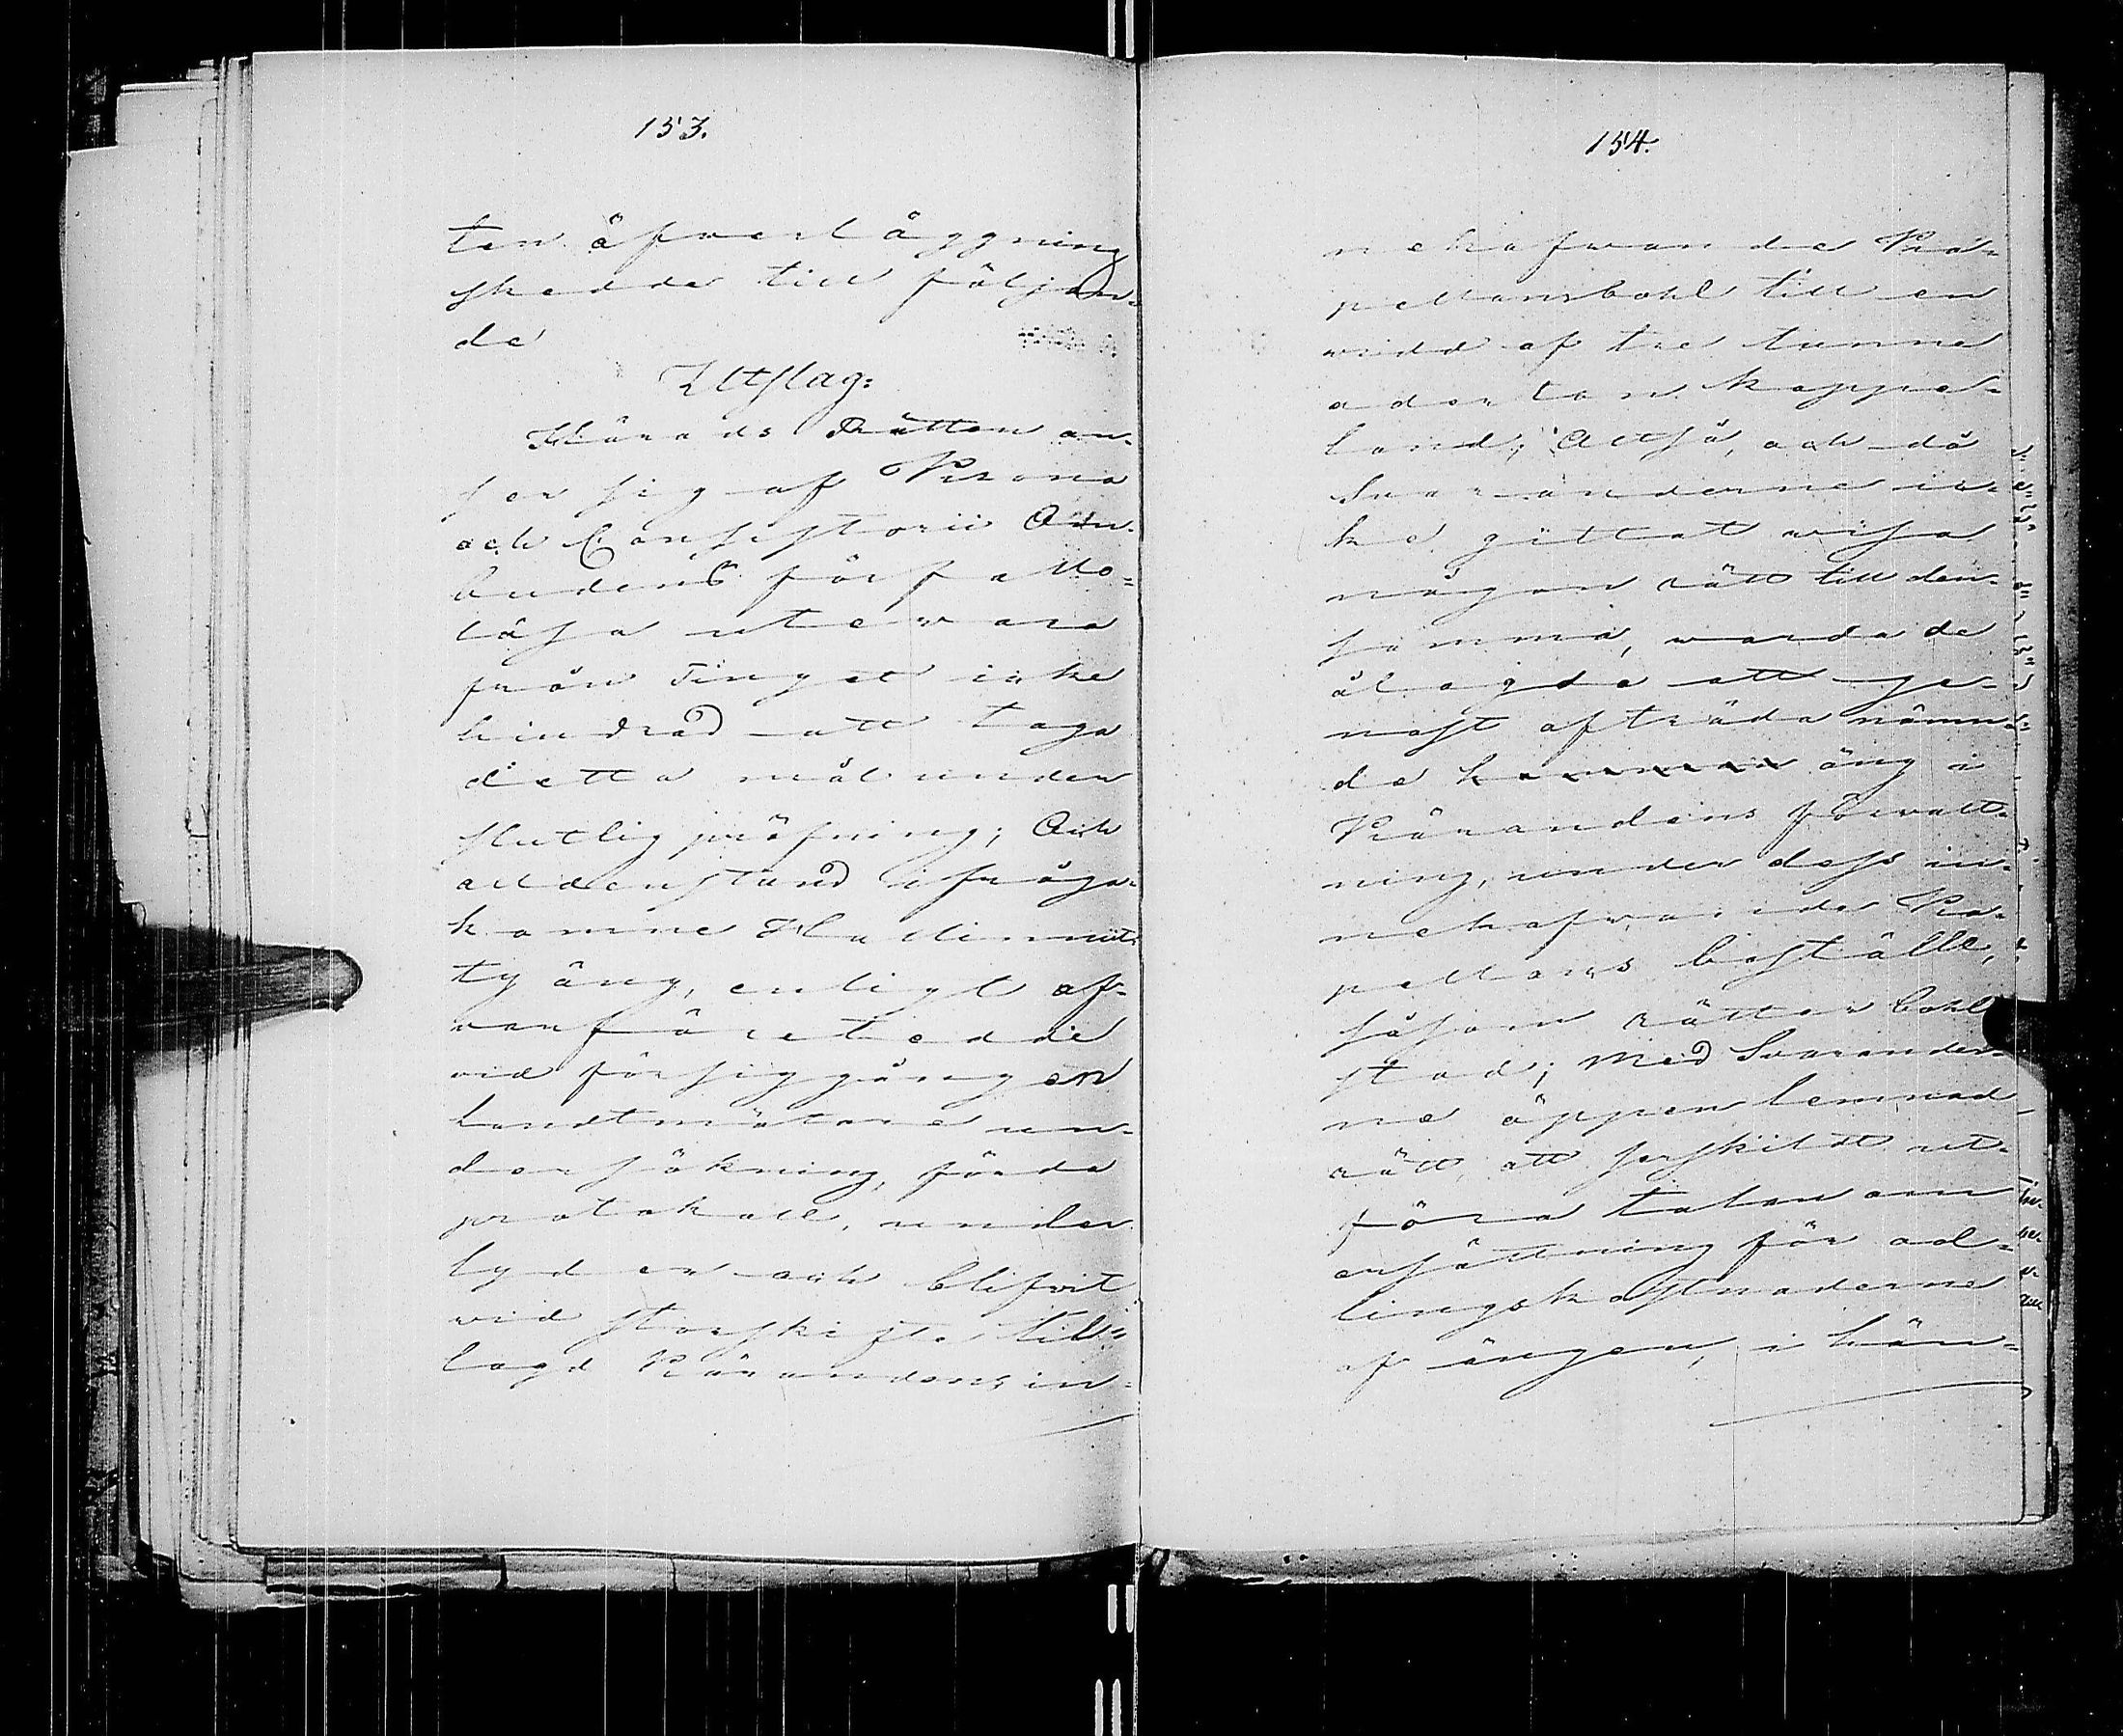 153.
ten öfverläggning
skedde till följan-
de
Utslag:
Härads Rätten an-
ser sig af Krono
och Consistorii Om-
budens förfallo-
lösa utevaro
från Tinget icke
hindrad att taga
detta mål under
slutlig pröfning; Och
alldenstund ifråga-
komne Hallinniit-
ty äng, enligt of-
vanföretedde
vid försiggången
landtmätare un-
dersökning, förda
protokoll, under
lyder och blifvit
vid storskifte till-
lagd Kärandens in-
154.
nehafvande Ka-
pellansbohl till en
vidd af tre tunne
aderton kappe-
land; Altså, och då
Svaranderne ic-
ke gittat visa
någon rätt till den-
samma, warda de
ålagde att ge-
nast afträda nämn-
de äng i
Kärandens förvalt-
ning, under dess in-
nehafvande Ka-
pellans boställe,
såsom rätter bohl
stad; med Svarander-
ne öppen lemnad
rätt att serskildt ut-
föra talan om
ersättning för od-
lingskostnaderne
af ängen, i hän-